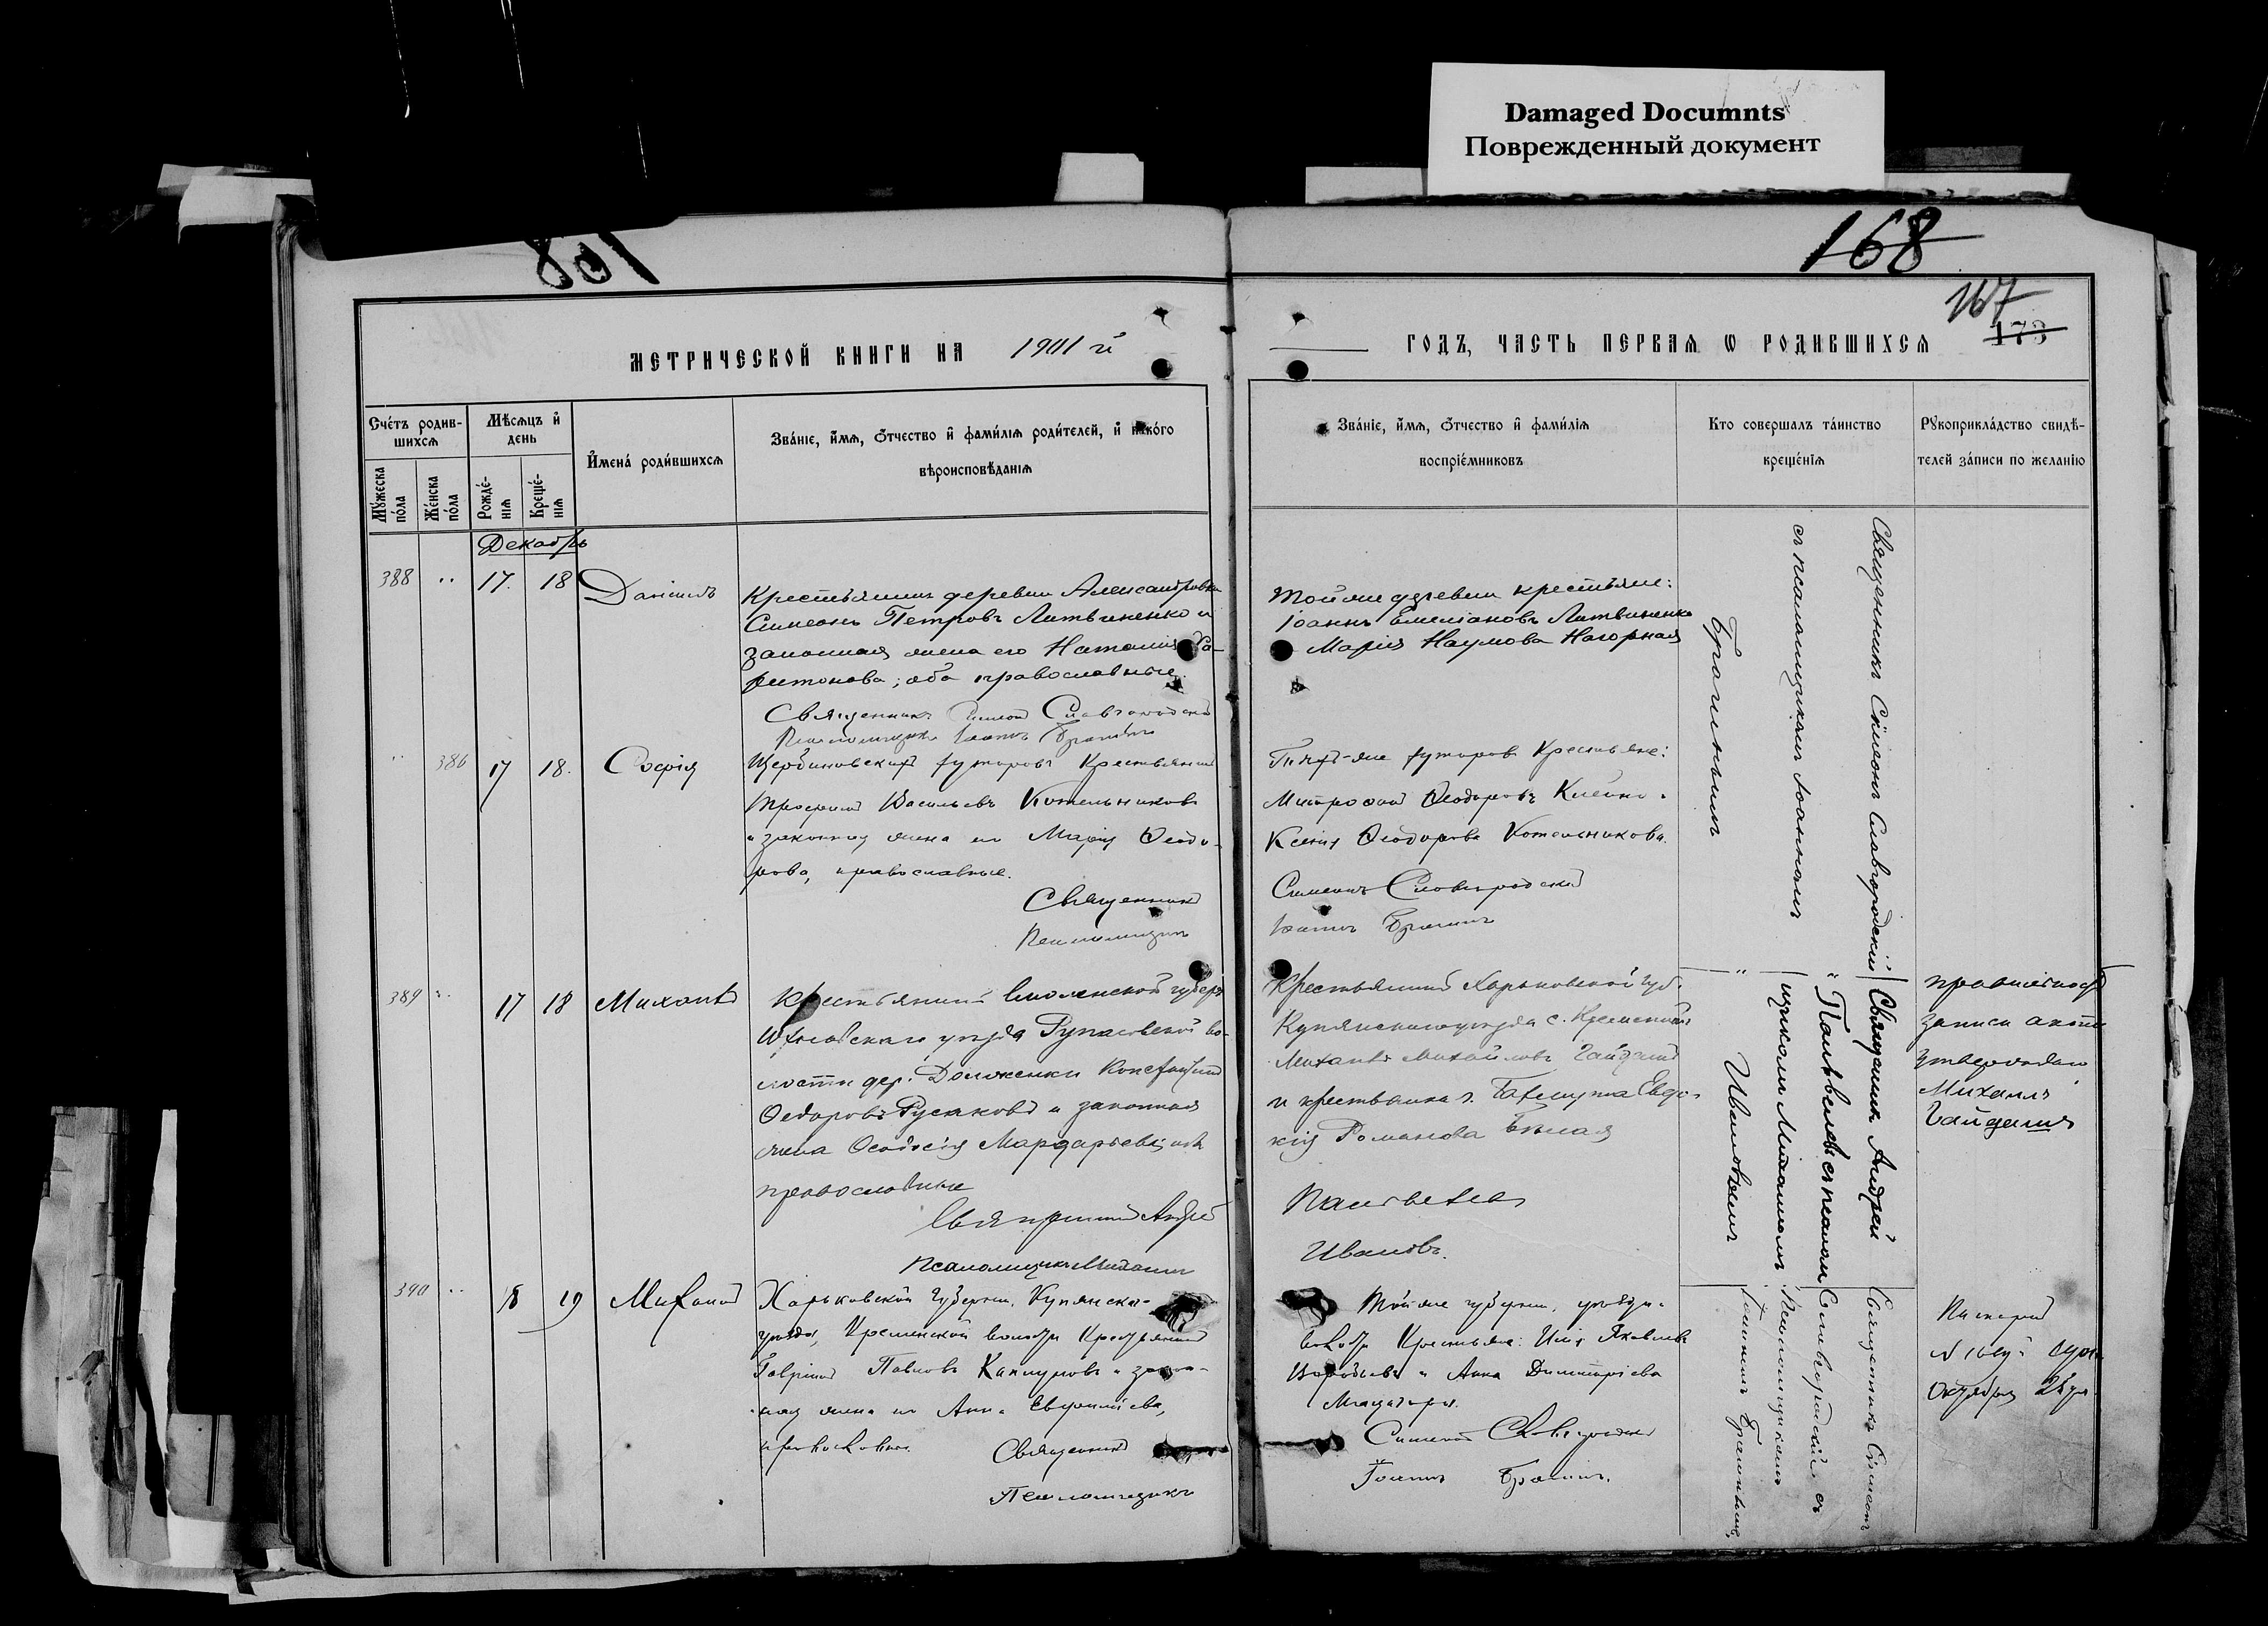 Damaged Documnts
Поврежденный документ
168
167
173
МЕТРИЧЕСКОЙ КНИГИ НА 1901 й
ГОДЪ, ЧАСТЬ ПЕРВАЯ Ѡ РОДИВШИХСЯ
Счетъ родив-
шихся
Мѣсяцъ и
день
Имена родившихся
Званіе, имя, отчество и фамилія родителей, и какого
вѣроисповѣданія
Мужеска
пола
Женска
пола
Рожде-
нія
Креще-
нія
Званіе, имя, отчество и фамилія
воспріемниковъ
Кто совершалъ таинство
крещенія
Рукоприкладство свидѣ-
телей записи по желанію
Декабрь
388 " 17. 18 Даніилъ
Крестьянинъ деревни Александровки
Симеонъ Петровъ Литвиненко и
законная жена его Наталія Ха-
ритонова; оба православные.
Священникъ Симеонъ Славгородскій
Псаломщикъ Іоаннъ Брагинъ
Тойже деревни крестьяне:
Іоаннъ Емеліановъ Литвиненко
Марія Наумова Нагорная
Священникъ Симеонъ Славгородскій
съ псаломщикомъ Іоанномъ
Брагинымъ
" 386 17 18. Софія
Щербиновскихъ хуторовъ Крестьянинъ
Трофимъ Васильевъ Котельниковъ
и законная жена его Марія Ѳеодо-
рова, православные.
Священникъ
Псаломщикъ
Тѣхъ-же хуторовъ Крестьяне:
Митрофанъ Ѳеодоровъ
Ксенія Ѳеодорова Котельникова.
Симеонъ Славгородскій
Іоаннъ Брагинъ
389 " 17 18 Михаилъ
Крестьянинъ Смоленской губер.
Юхновскаго уѣзда волости дер.
Ѳедоровъ Русаковъ и законная
жена Ѳеодосія Мардарьева, оба
православные
Священникъ Андрей
Псаломщикъ Михаилъ
Крестьянинъ Харьковской губ.
Купянскаго уѣзда с. Кременной
Михаилъ Михайловъ Гайдашъ
и крестьянка г. Бахмута Евдо-
кія Романова Бѣлая
Ивановъ.
Священникъ Андрей
псаломщикомъ Михаиломъ
Ивановымъ
записи
утверждаю
Михаилъ
Гайдашъ
390 " 18 19 Михаилъ
Харьковской Губерніи, Купянска-
уѣзда, Кременской волости Крестьянинъ
Гавріилъ Павловъ Каплуновъ и закон-
ная жена его Анна Евфиміева,
православные.
Священникъ
Псаломщикъ
Тойже губерніи, уѣзда и
волости Крестьяне: Илія Яковлевъ
Воробьевъ и Анна Димитріева
Симеонъ Славгородскій
Іоаннъ Брагинъ.
Священникъ Симеонъ
Славгородскій съ
Псаломщикомъ
Іоанномъ Брагинымъ
Октября